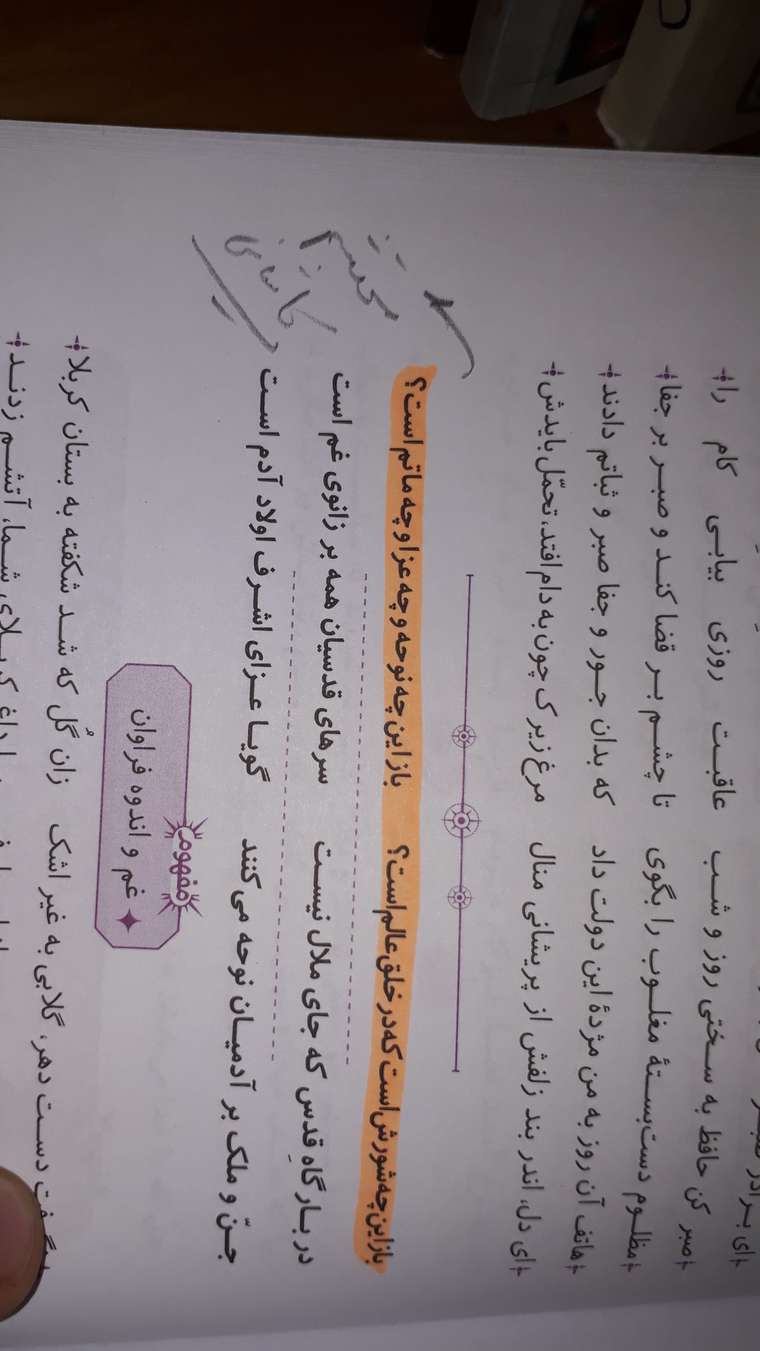 ای برادر صبر
صبر کن حافظ به سختی روز و شب عاقبت روزی بیابی کام را
مظلوم دست‌بستهٔ مغلوب را بگوی تا چشم بر قضا کند و صبر بر جفا
هاتف آن روز به من مژدهٔ این دولت داد که بدان جور و جفا صبر و ثباتم دادند
ای دل، اندر بند زلفش از پریشانی منال مرغ زیرک چون به دام افتد، تحمّل بایدش
باز این چه شورش است که در خلق عالم است؟ باز این چه نوحه و چه عزا و چه ماتم است؟
در بارگاهِ قدس که جای ملال نیست سرهای قدسیان همه بر زانوی غم است
جنّ و ملک بر آدمیان نوحه می‌کنند گویا عزای اشرف اولاد آدم است
محتشم
کاشانی
مفهوم
غم و اندوه فراوان
نگرفت دست دهر، گلابی به غیر اشک زان گُل که شد شکفته به بستان کربلا
داغ کربلای شما، آتشم زدند